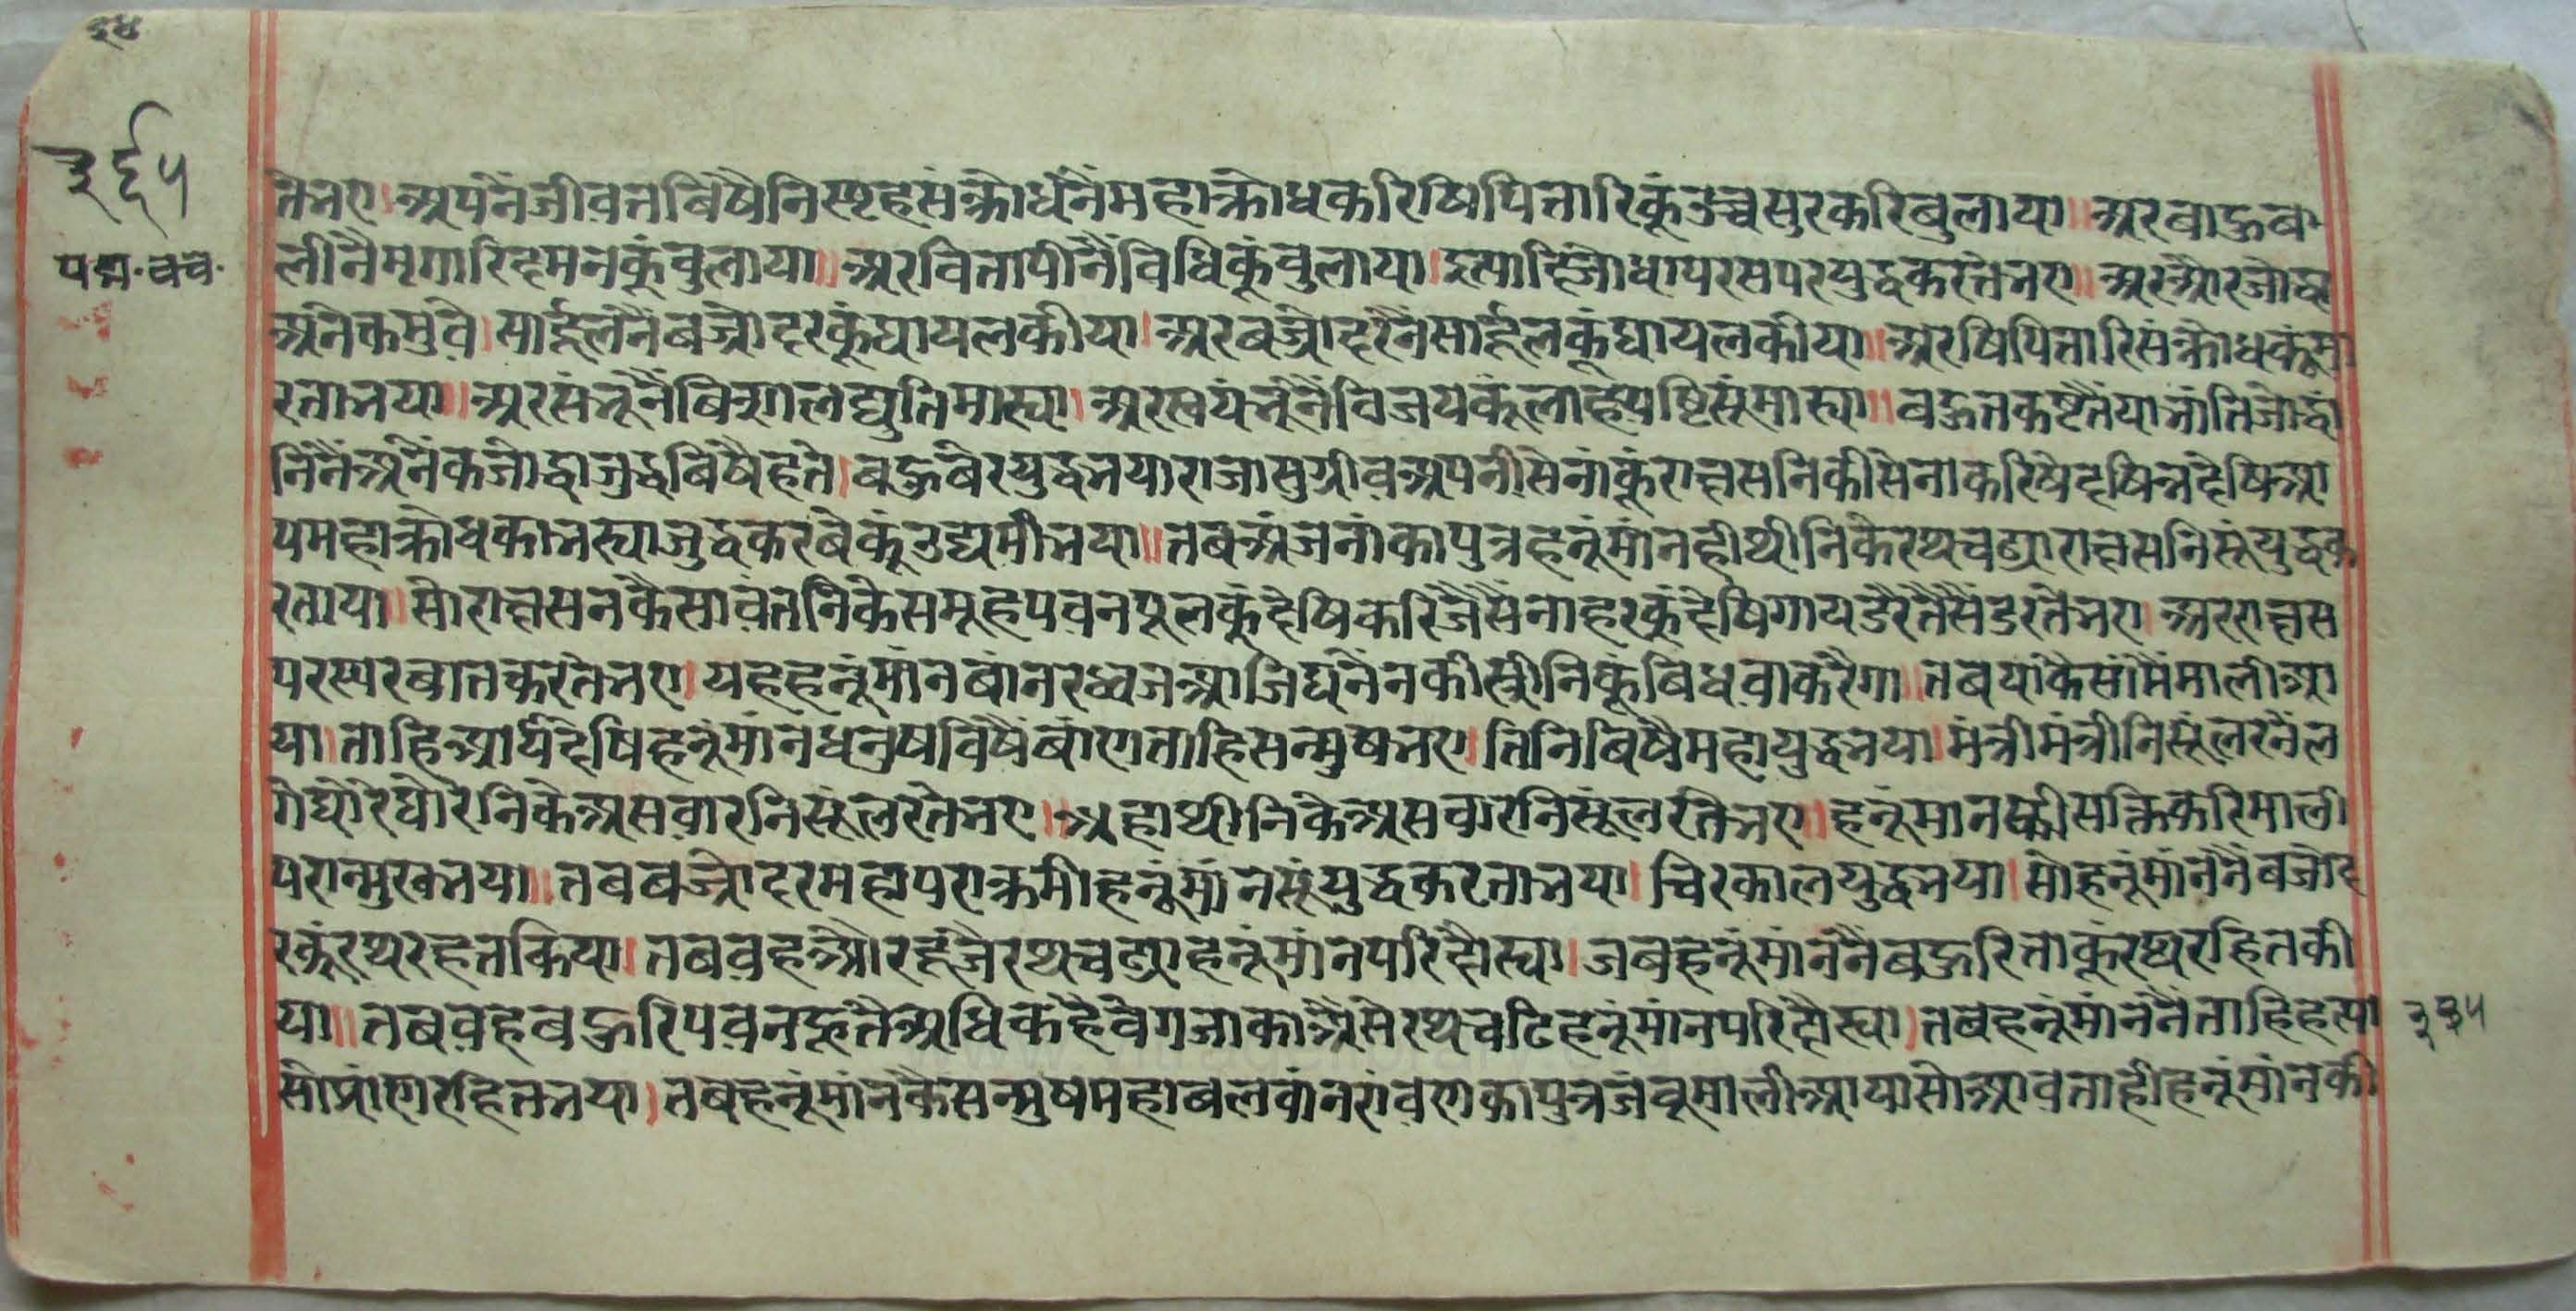 ३४
३६५
पद्म.वच.
तेभए। अपनैजीवनबिषैनिस्पृहसंक्रोधनैमहाक्रोधकरिषिपितारिकूंउच्चसुरकरिबुलाया॥अरबाहुब
लीनैमृगारिदमनकूंबुलाया॥अरवितापीनैंविधिकूंबुलाया।इत्यादिजोधापरसपरयुद्धकरतेभए॥अरऔरजोद्धा
अनेकमुवे।सार्दूलनैंबज्रोदरकूंघायलकीया।अरबज्रोदरनैसार्दूलकूंघायलकीया॥अरषिपितारिसंक्रोधकूंमा
रताभया॥अरसंभूनैंबिशालद्युतिमास्या।अरस्वयंभूनैंविजयकूंलोहयष्टिसूंमास्या॥बहुतकष्टतैंयाभांतिजोद्धां
निनैंअनेकजोद्धाजुद्धबिषैहते।बहुबेरयुद्धभयाराजासुग्रीवअपनीसेनांकूंराक्षसनिकीसेनाकरिषेदषिन्नदेषिआ
पमहाक्रोधकाभस्याजुद्धकरबेकूंउद्यमीभया॥तबअंजनांकापुत्रहनूंमांनहाथीनिकेरथचढ्याराक्षसनिसूंयुद्धक
रताया॥सोराक्षसनकैसावंतनिकेसमूहपवनपूतकूंदेषिकरिजैसैंनाहरकूंदेषिगायडरैतैसैंडरतेभए।अरराक्षस
परस्परबातकरतेभए।यहहनूंमांनबांनरध्वजआजिघनैनकीस्त्रीनिकूंबिधवाकरैगा॥तबयाकैसांमैंमालीआ
या।ताहिआयदेषिहनूंमांनधनुषविषैंबांणताहिसन्मुषभए।तिनिबिषैमहायुद्धभया।मंत्रीमंत्रीनिसूंलरनैंल
गेघोरेघोरेनिकेअसवारनिसूंलरतेभए।अहाथीनिकेअसवारनिसूंलरतेभए॥हनूंमानकीसक्तिकरिमाली
परान्मुखभया॥तबबज्रोदरमहापराक्रमीहनूंमांनसूंयुद्धकरताभया।चिरकालयुद्धभया।सोहनूंमांननैंबज्रोद
रकूंरथरहतकिया।तबवहऔरहूंजैरथचढ्याहनूंमांनपरिदौस्या।जबहनूंमांननैंबहुरिताकूंरथरहितकी
या॥तबवहबहुरिपवनहूतैअधिकहैवेगजाकाऔसेरथचढिहनूंमांनपरिदौस्या।तबहनूंमांननैंताहिहत्या
सोप्रांणरहितभया।तबहनूंमांनकैसन्मुषमहाबलवांनरांवणकापुत्रजंबूमालीआयासोआवताहीहनूंमांनकी
३३५